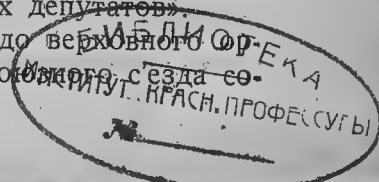 х депутатов».
до верховного ор-
оюзного с'езда со-
БИБЛИОТЕКА
ИНСТИТУТ КРАСН. ПРОФЕССУРЫ
№